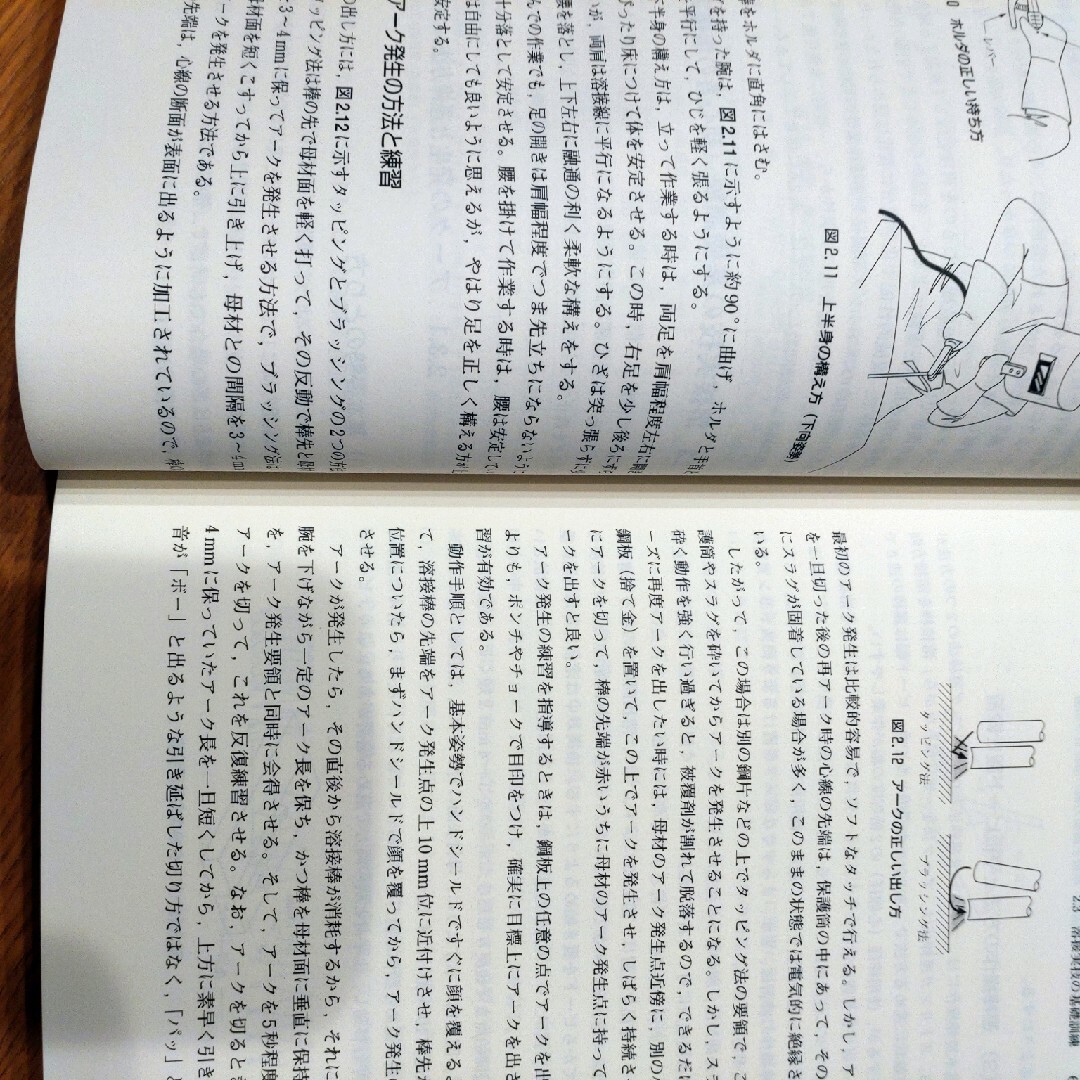 レバー
0 ホルダの正しい持ち方
図2.11 上半身の構え方（下向姿勢）
棒をホルダに直角にはさむ。
を持った腕は，図2.11に示すように約90°に曲げ，ホルダと
平行にして，ひじを軽く張るようにする。
半身の構え方は，立って作業する時は，両足を肩幅程度左右に
ぴったり床につけて体を安定させる。この時，右足を少し後ろに
が，両肩は溶接線に平行になるようにする。ひざは突っ張らずに
腰を落とし，上下左右に融通の利く柔軟な構えをする。
んでの作業でも，足の開きは肩幅程度でつま先立ちにならないように
十分落として安定させる。腰を掛けて作業する時は，腰は安定してい
は自由にしても良いように思えるが，やはり足を正しく構える方が
安定する。
アーク発生の方法と練習
の出し方には，図2.12に示すタッピングとブラッシングの2つの方
タッピング法は棒の先で母材面を軽く打って，その反動で棒先と母材
を3～4mmに保ってアークを発生させる方法で，ブラッシング法は
母材面を短くこすってから上に引き上げ，母材との間隔を3～4mm
アークを発生させる方法である。
先端は，心線の断面が表面に出るように加工されているので，
2.3 溶接実技の基礎訓練
タッピング法
ブラッシング法
図2.12 アークの正しい出し方
最初のアーク発生は比較的容易で，ソフトなタッチで行える。しかし，ア
を一旦切った後の再アーク時の心線の先端は，保護筒の中にあって，その
にスラグが固着している場合が多く，このままの状態では電気的に絶縁さ
いる。
したがって，この場合は別の鋼片などの上でタッピング法の要領で，こ
護筒やスラグを砕いてからアークを発生させることになる。しかし，ス
砕く動作を強く行い過ぎると，被覆剤が割れて脱落するので，できるだけ
ーズに再度アークを出したい時には，母材のアーク発生点近傍に，別の
鋼板（捨て金）を置いて，この上でアークを発生させ，しばらく持続さ
にアークを切って，棒の先端が赤いうちに母材のアーク発生点に持って
ークを出すと良い。
アーク発生の練習を指導するときは，鋼板上の任意の点でアークを出
よりも，ポンチやチョークで目印をつけ，確実に目標上にアークを出さ
習が有効である。
動作手順としては，基本姿勢でハンドシールドですぐに顔を覆える。
て，溶接棒の先端をアーク発生点の上10mm位に近付けさせ，棒先が
位置についたら，まずハンドシールドで顔を覆ってから，アーク発生
させる。
アークが発生したら，その直後から溶接棒が消耗するから，それに
腕を下げながら一定のアーク長を保ち，かつ棒を母材面に垂直に保持
を，アーク発生要領と同時に会得させる。そして，アークを5秒程度
アークを切って，これを反復練習させる。なお，アークを切るとき
4mmに保っていたアーク長を一旦短くしてから，上方に素早く引き
音が「ボー」と出るような引き延ばした切り方ではなく，「パッ」と